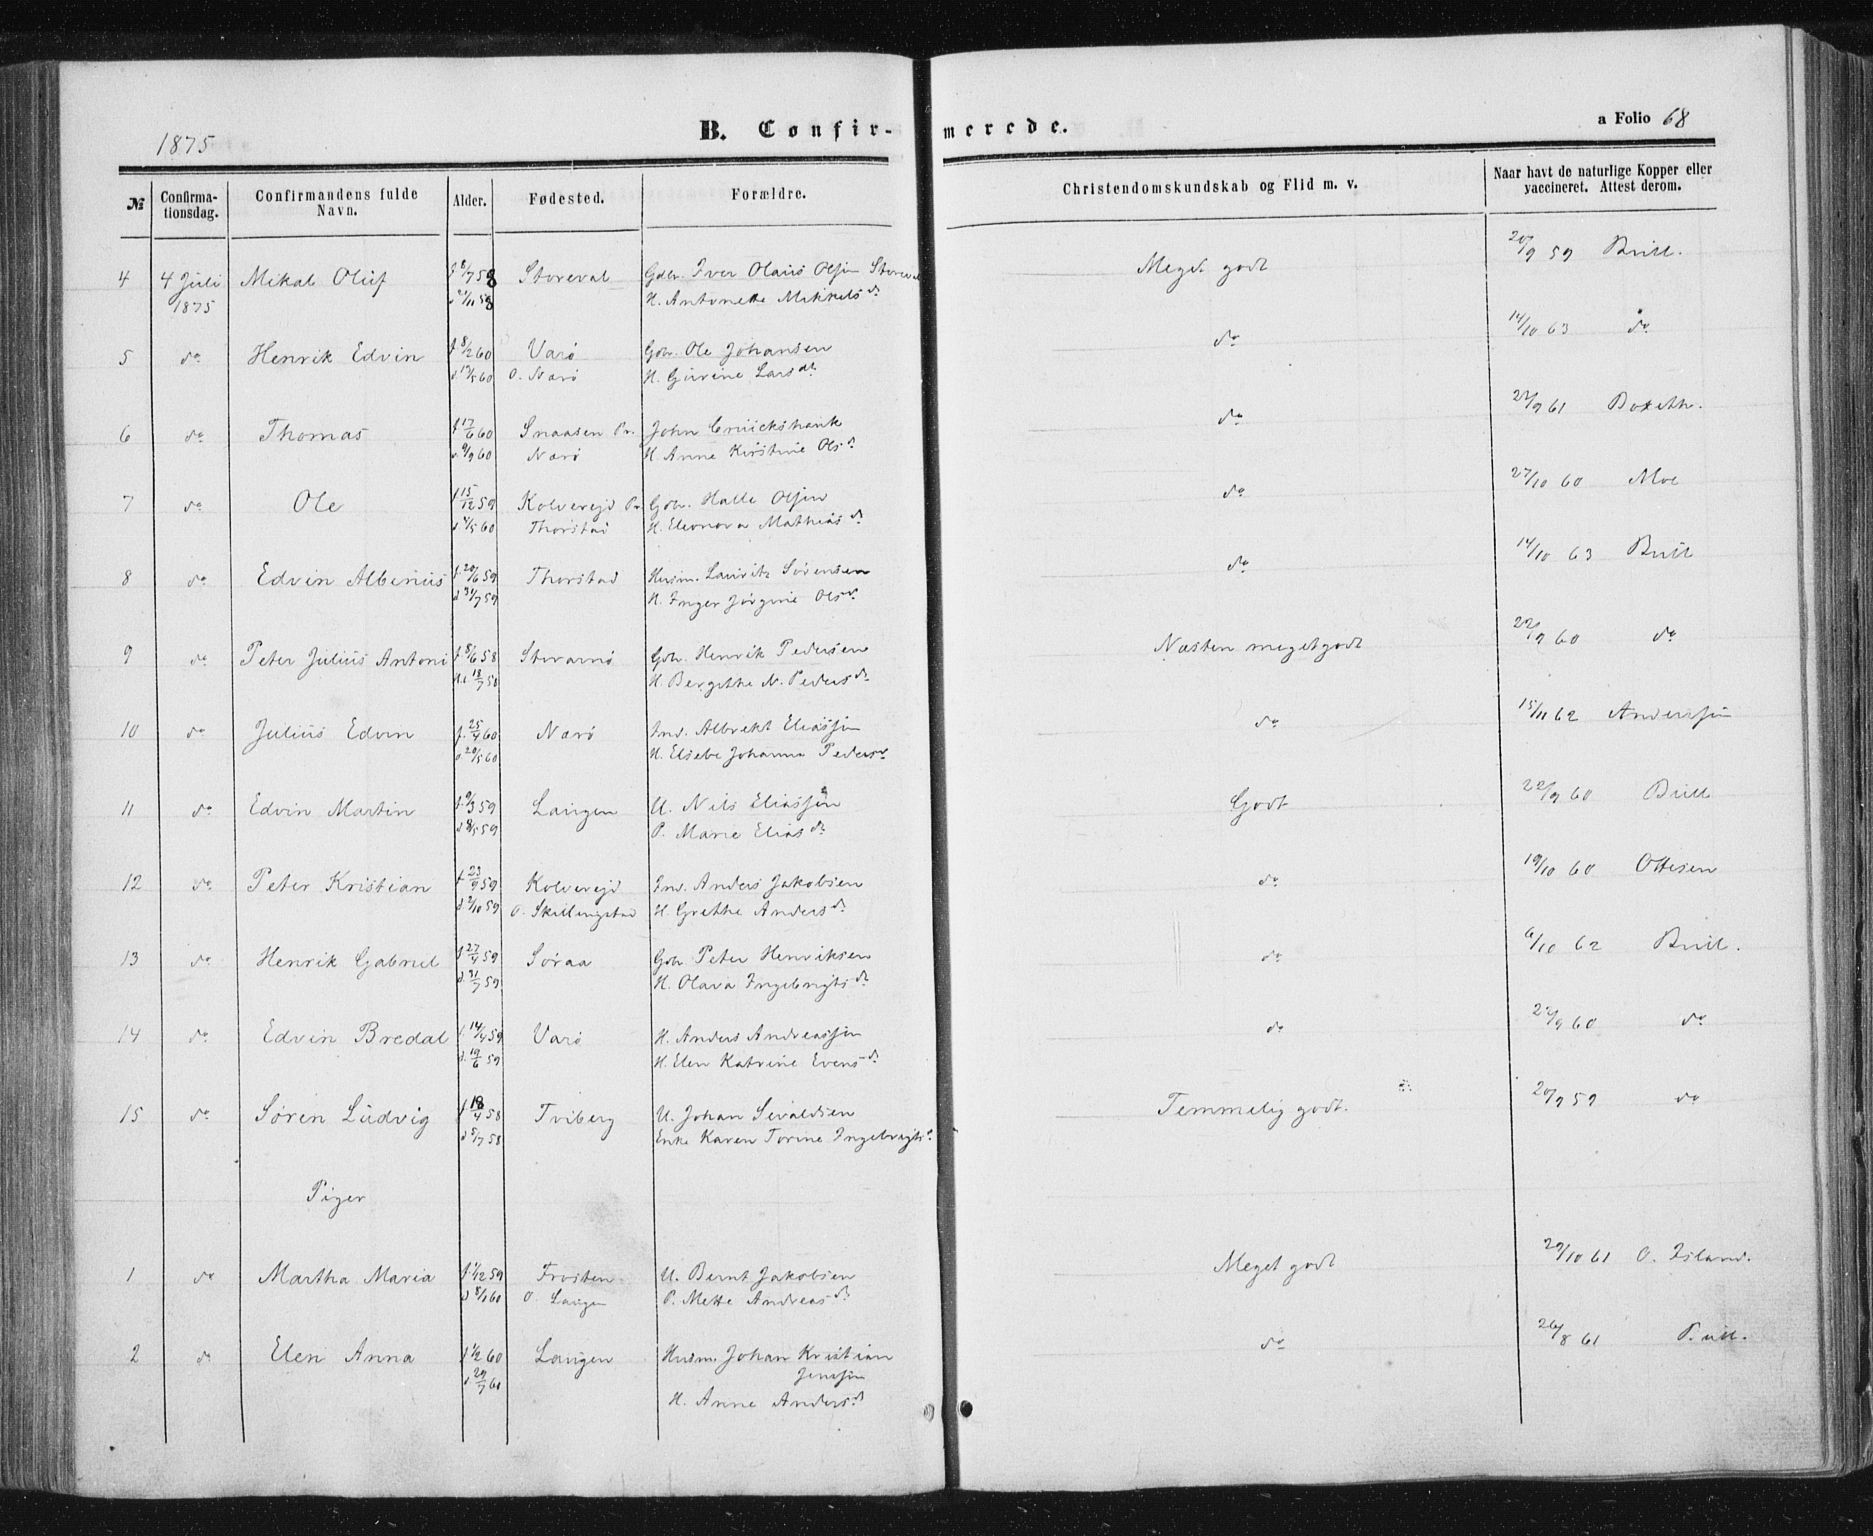 1875
B. Confirmerede.
a Folio 68
№ Confirmationsdag. Confirmandens fulde Navn. Alder. Fødested. Forældre. Christendomskundskab og Flid m. v. Naar havt de naturlige Kopper eller vaccineret. Attest derom.
4 4 Juli 1875 Mikal Oluf f 8/7 58 Storeval Gdbr. Iver Olaus Olsen Storeval Meget godt 20/9 59 Brill.
d 21/11 58 H. Antonette Mikkelsd.
5 do Henrik Edvin f 8/2 60 Varø Gbr. Ole Johansen do 14/10 63 do
d. 17/5 60 O. Nærø H. Gurine Larsdt.
6 do Thomas f 17/6 60 Snaasen Pr. John Cruickshank do 27/9 61
d. 9/9 60 Nærø H. Anne Kirstine Olsd.
7 do Ole f 15/12 59 Kolvereid Pr. Gbr. Halle Olsen do 27/10 60 Moe
d 4/5 60 Thorstad H. Eleonora Mathiasd.
8 do Edvin Alberius f. 20/6 59 Thorstad Husm. Lauritz Sørensen do 14/10 63 Brill
d 31/7 59 H. Inger Jørgine Olsd.
9 do Peter Julius Antoni f 8/6 58 Gbr. Henrik Pedersen Næsten meget godt 22/9 60 do
18/7 58 H. Bergithe N. Pedersd.
10 do Julius Edvin f. 25/4 60 Nærø Ind. Albrekt Eliassen do 15/11 62 Anderssen
d 20/5 60 H. Elsebe Johanna Pedersd.
11 do Edvin Martin f. 9/3 59 Laugen U. Nils Eliassen Godt 22/9 60 Brill
d 8/5 59 P. Marie Eliasd.
12 do Peter Kristian f 23/9 59 Kolvereid Ind. Anders Jakobsen do 19/10 60 Ottesen
d 2/10 59 O. Skillingstad H. Grethe Andersd.
13 do Henrik Gabriel f 27/4 59 Søraa Gbr Peter Henriksen do 6/10 62 Brill.
d. 31/7 59 H. Olava Ingebrigtsd.
14 do Edvin Bredal f. 14/4 59 Varø H. Anders Andreassen do 22/9 60 do
d. 19/6 59 H. Elen Katrine Evensd.
15 do Søren Ludvig f 18/4 58 Tviberg U. Johan Sivaldsen Temmelig godt. 20/9 59 do
d 5/7 58 Enke Karen Torine Ingebrigtsd.
Piger
1 do Martha Maria f. 1/12 59 Frosten U. Bernt Jakobsen Meget godt 29/10 61 O. Island.
d 8/1 60 O. Laugen P. Mette Andreasd.
2 do Elen Anna f 1/2 60 Laugen Husm. Johan Kristian do 26/8 61 Brill.
d. 29/7 60 Jenssen
H. Anne Andersd.